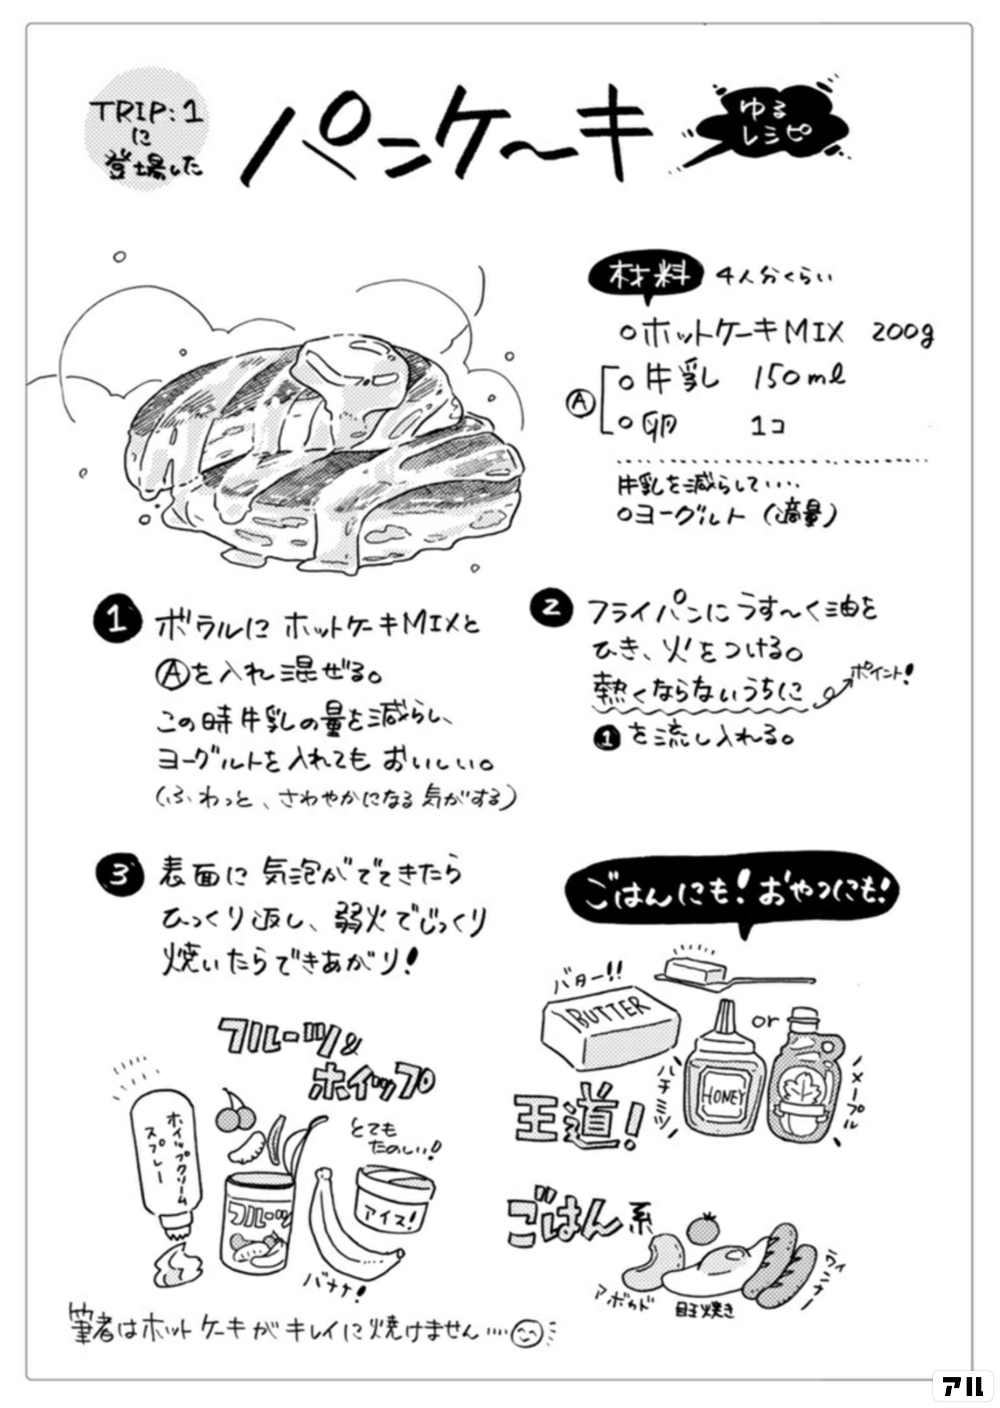 TRIP:1
に
登場した
パンケ〜キ
ゆる
レシピ
材料 4人分くらい
○ホットケーキMIX 200g
Ⓐ
○牛乳 150ml
○卵 1コ
牛乳を減らして....
○ヨーグルト (適量)
1 ボウルにホットケーキMIXと
Ⓐを入れ混ぜる。
この時牛乳の量を減らし、
ヨーグルトを入れてもおいしい。
(ふわっと、さわやかになる気がする)
2 フライパンにうす〜く油を
ひき、火をつける。
熱くならないうちに
ポイント!
1を流し入れる。
3 表面に気泡がでてきたら
ひっくり返し、弱火でじっくり
焼いたらできあがり!
ごはんにも!おやつにも!
バター!!
BUTTER
or
HONEY
ハチミツ
メープル
王道!
フルーツ&
ホイップ
ホイップクリーム
スプレー
とても
たのしい!
フルーツ
アイス!
バナナ!
ごはん系
アボカド
目玉焼き
ウィンナー
筆者はホットケーキがキレイに焼けません....
アル